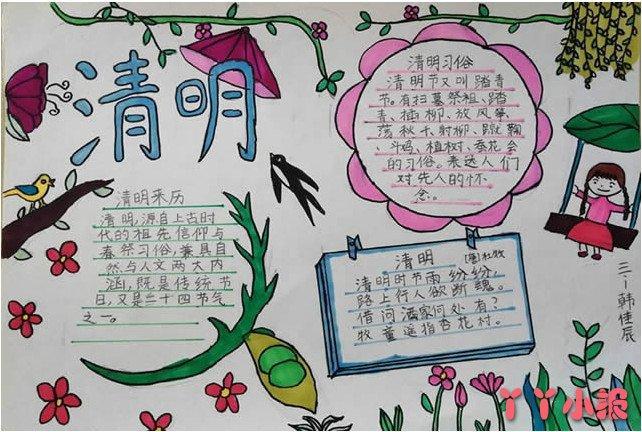 清明
清明来历
清明,源自上古时
代的祖先信仰与
春祭习俗,兼具自
然与人文两大内
涵,既是传统节
日,又是二十四节气
之一。
清明习俗
清明节又叫踏青
节。有扫墓祭祖、踏
青、插柳、放风筝、
荡秋千、射柳、蹴鞠
、斗鸡、植树、蚕花会
的习俗。表达人们
对先人的怀
念。
清明
[唐]杜牧
清明时节雨纷纷,
路上行人欲断魂。
借问酒家何处有?
牧童遥指杏花村。
三、一韩佳辰
丫丫小报